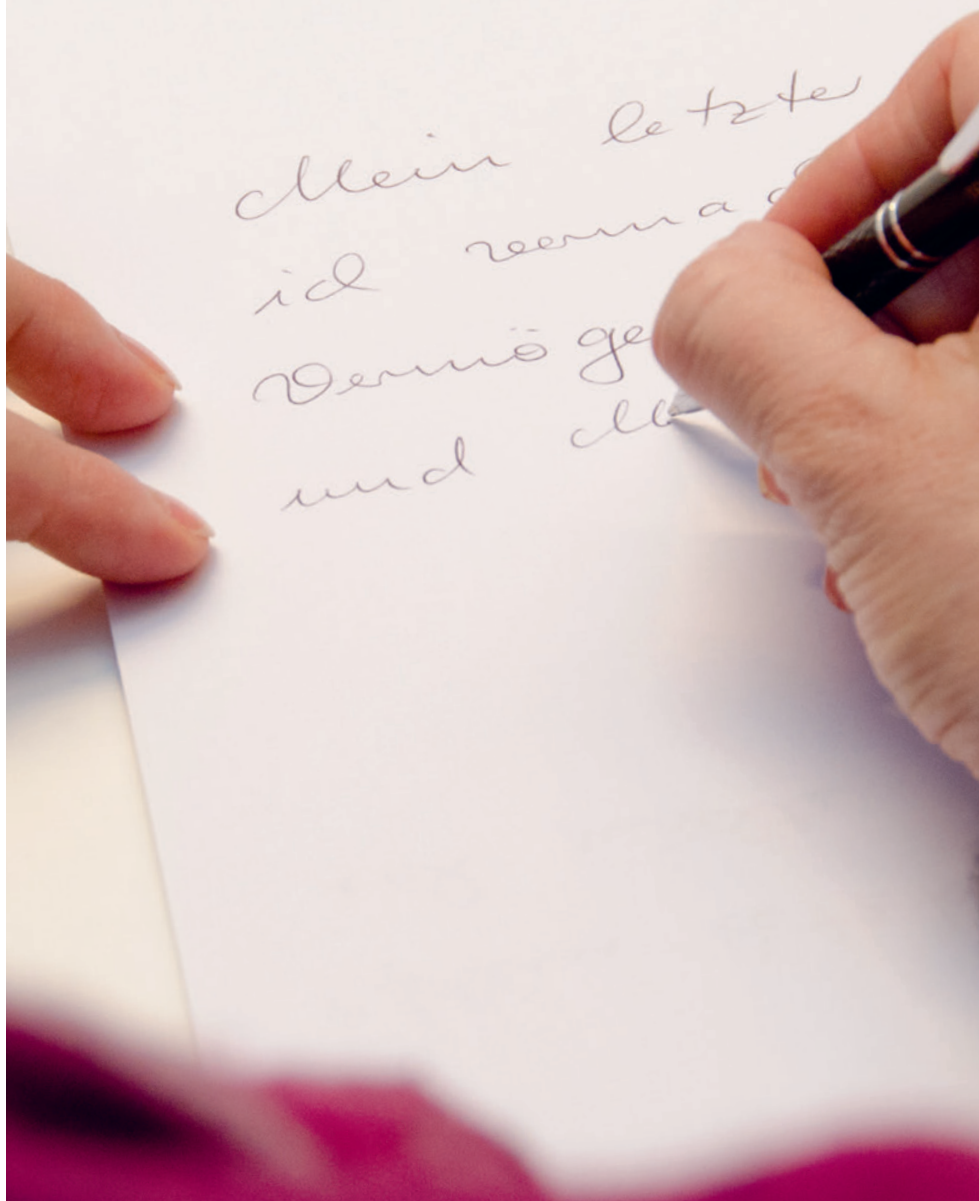 Mein letzter
ich verma
Vermöge
und M